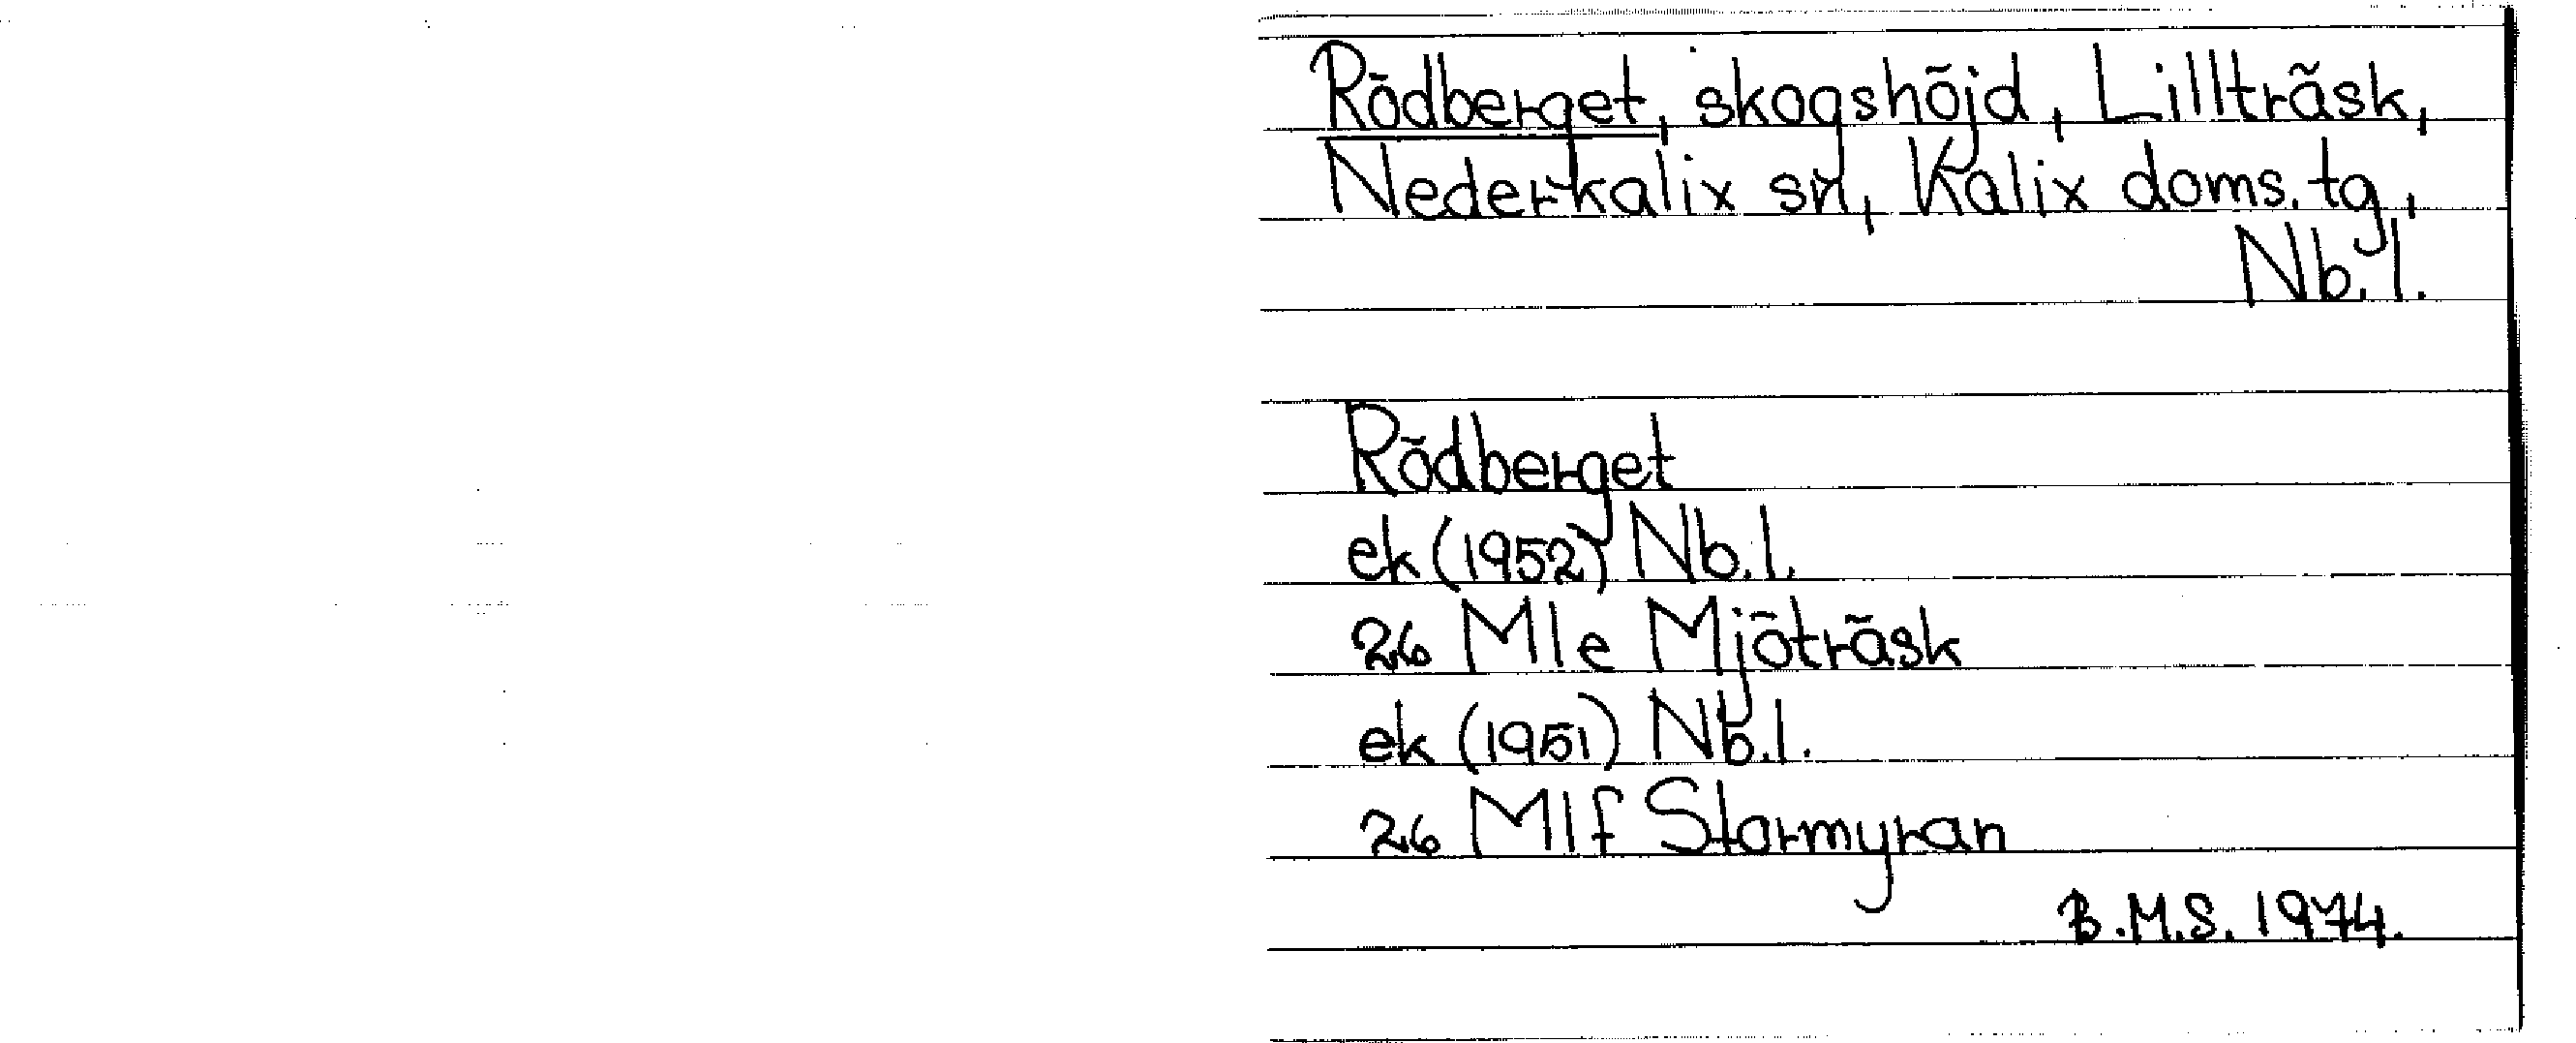 Rödberget, skogshöjd, Lillträsk,
Nederkalix sn, Kalix doms. tg,
Nb.l.
Rödberget
ek (1952) Nb.l.
26 Mle Mjöträsk
ek (1951) Nb.l.
26 Mlf Stormyran
B.M.S. 1974.